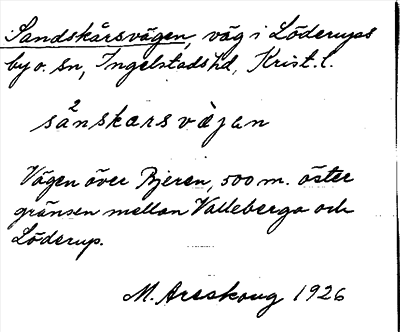 Sandskårsvägen, väg i Löderups
by o. sn, Ingelstads hd, Krist. l.
sån²skarsvägan
Vägen över Bjeren, 500 m. öster
gränsen mellan Valleberga och
Löderup.
M. Areskoug 1926